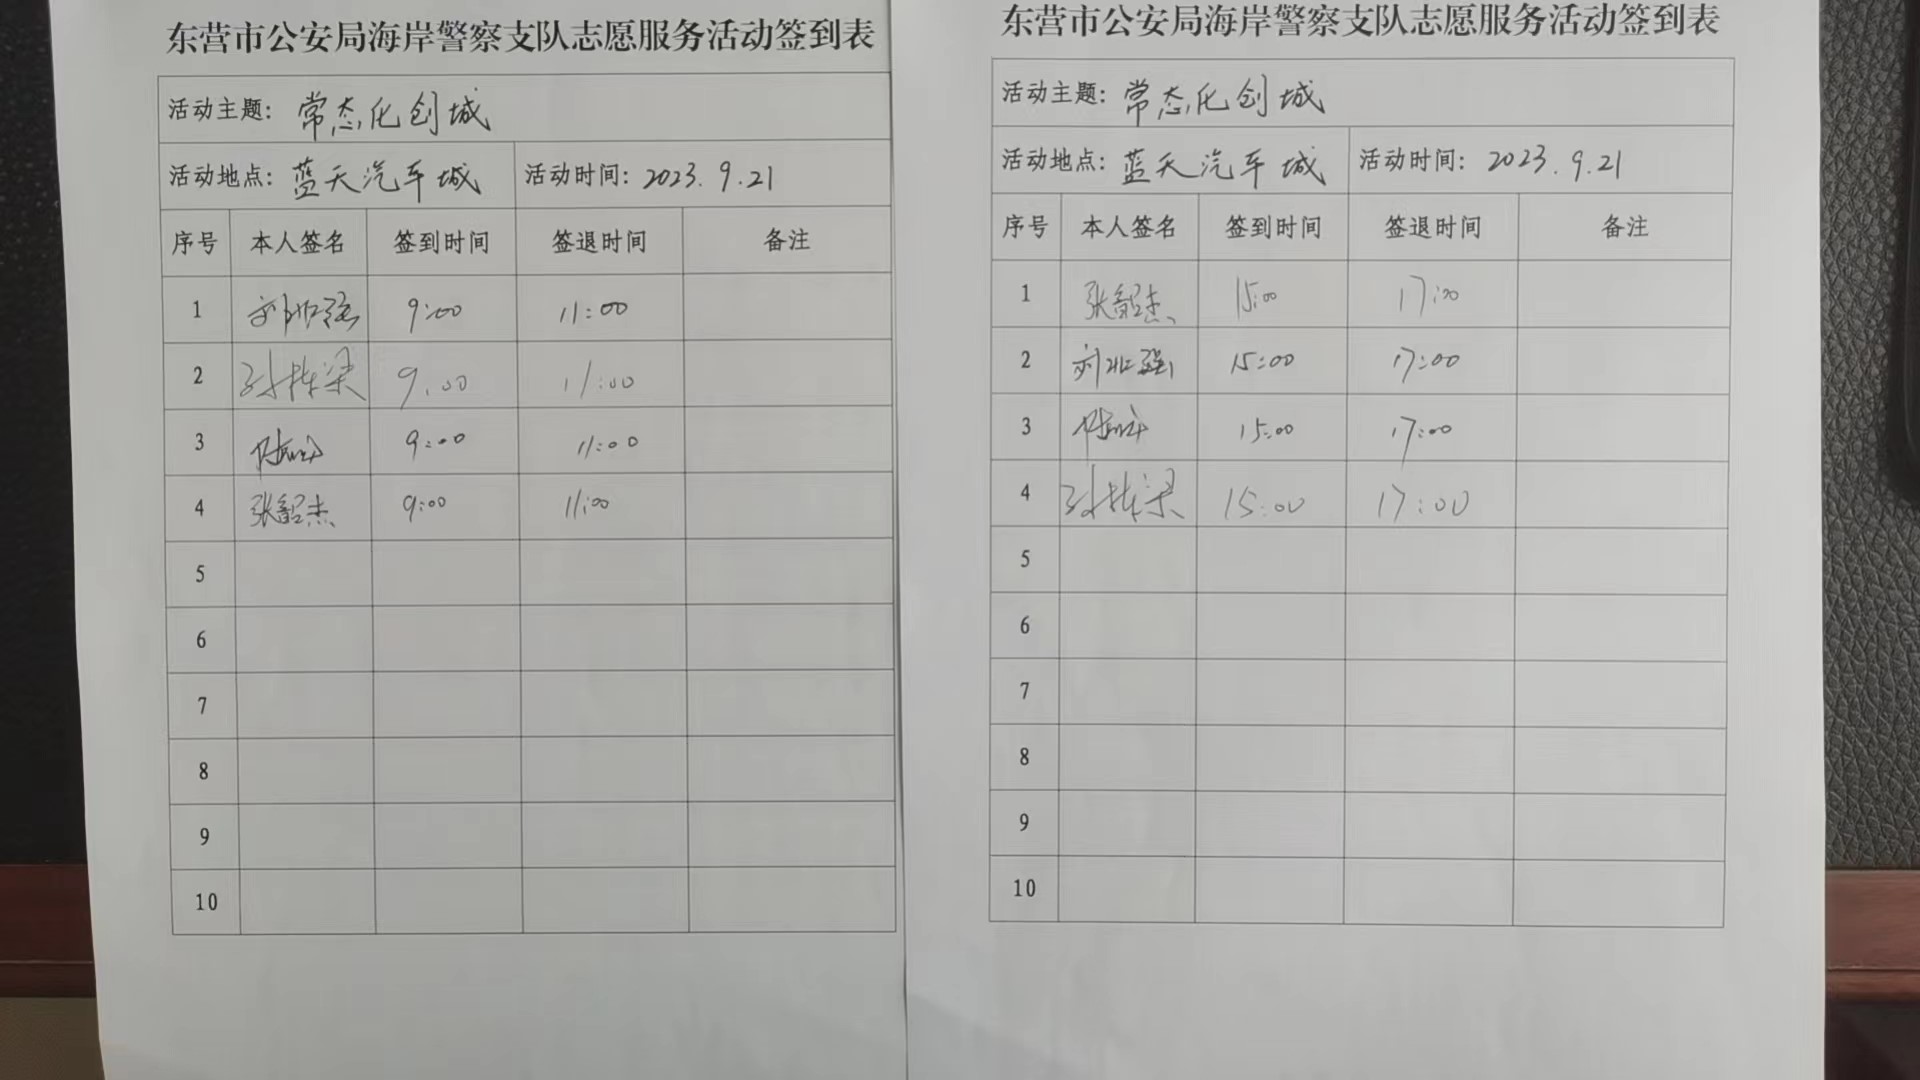 东营市公安局海岸警察支队志愿服务活动签到表
活动主题: 常态化创城
活动地点: 蓝天汽车城 活动时间: 2023.9.21
序号 本人签名 签到时间 签退时间 备注
1 9:00 11:00
2 孙栋梁 9:00 11:00
3 9:00 11:00
4 张韶杰 9:00 11:00
5
6
7
8
9
10
东营市公安局海岸警察支队志愿服务活动签到表
活动主题: 常态化创城
活动地点: 蓝天汽车城 活动时间: 2023.9.21
序号 本人签名 签到时间 签退时间 备注
1 张韶杰 15:00 17:00
2 15:00 17:00
3 15:00 17:00
4 孙栋梁 15:00 17:00
5
6
7
8
9
10